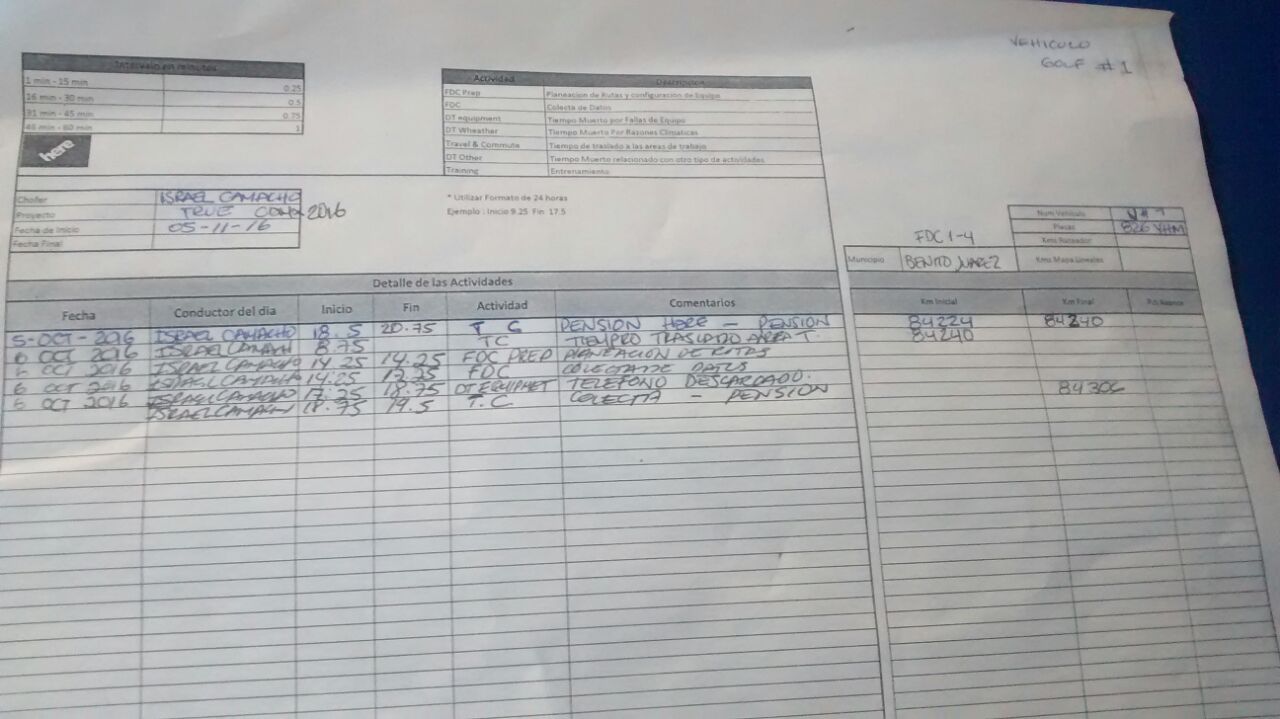 VEHICULO
GOLF #1
Intervalo en minutos
1 min - 15 min 0.25
16 min - 30 min 0.5
31 min - 45 min 0.75
46 min - 60 min 1
here
Actividad Descripcion
FDC Prep Planeacion de Rutas y configuracion de Equipo
FDC Colecta de Datos
DT equipment Tiempo Muerto por Fallas de Equipo
DT Wheather Tiempo Muerto Por Razones Climaticas
Travel & Commute Tiempo de traslado a las areas de trabajo
DT Other Tiempo Muerto relacionado con otro tipo de actividades
Training Entrenamiento
Chofer ISRAEL CAMACHO
Proyecto TRUE 2016
Fecha de Inicio 05-11-16
Fecha Final
* Utilizar Formato de 24 horas
Ejemplo : Inicio 9.25 Fin 17.5
Num Vehiculo
Placas 826 YHM
Kms Ruteador
Kms Mapa Lineales
FDC 1-4
Municipio BENITO JUAREZ
Detalle de las Actividades
Fecha Conductor del dia Inicio Fin Actividad Comentarios Km Inicial Km Final
5-OCT-2016 ISRAEL CAMACHO 18.5 20.75 T C PENSION HERE - PENSION 84224 84240
OCT 2016 ISRAEL CAMACHO 8.75 TC TRASLADO T. 84240
6 OCT 2016 ISRAEL CAMACHO 14.25 14.25 FDC PREP PLANEACION DE RUTAS
6 OCT 2016 ISRAEL CAMACHO 14.25 FDC COLECTA DE DATOS
6 OCT 2016 ISRAEL CAMACHO 17.25 18.75 DT EQUIPMET TELEFONO DESCARGADO.
OCT 2016 ISRAEL CAMACHO 18.75 19.5 T.C COLECTA - PENSION 84306